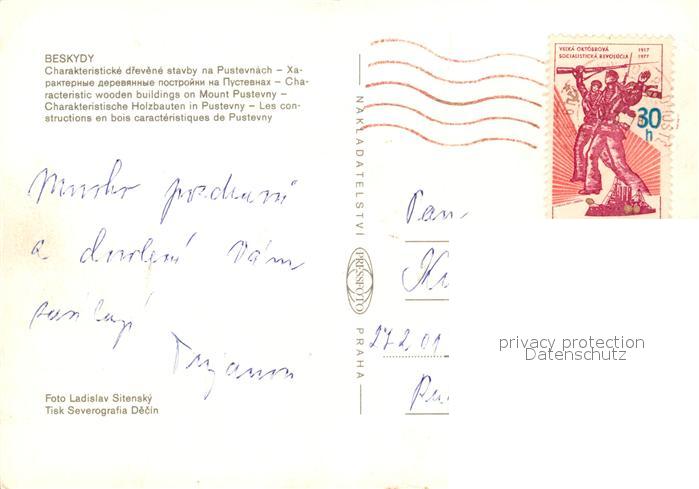 BESKYDY
Charakteristické dřevěné stavby na Pustevnách – Ха-
рактерные деревянные постройки на Пустевнах – Cha-
racteristic wooden buildings on Mount Pustevny –
Charakteristische Holzbauten in Pustevny – Les con-
structions en bois caractéristiques de Pustevny
VEĽKÁ OKTÓBROVÁ 1917
SOCIALISTICKÁ REVOLÚCIA 1977
30
h
NAKLADATELSTVÍ
PRESSFOTO
PRAHA
Mnoho pozdravů
a dovolené Vám
zasílají
Pan
272 01
privacy protection
Datenschutz
Foto Ladislav Sitenský
Tisk Severografia Děčín